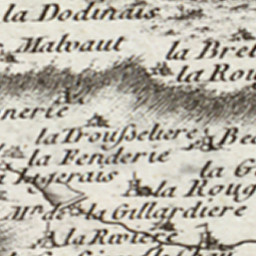 la Dodinais
Malvaut
la Bret
la Rou
nerie
la Trousseliere
Bea
la Fenderie
la G
Jagerais
la Roug
Mn. de la Gillardiere
la Riviere